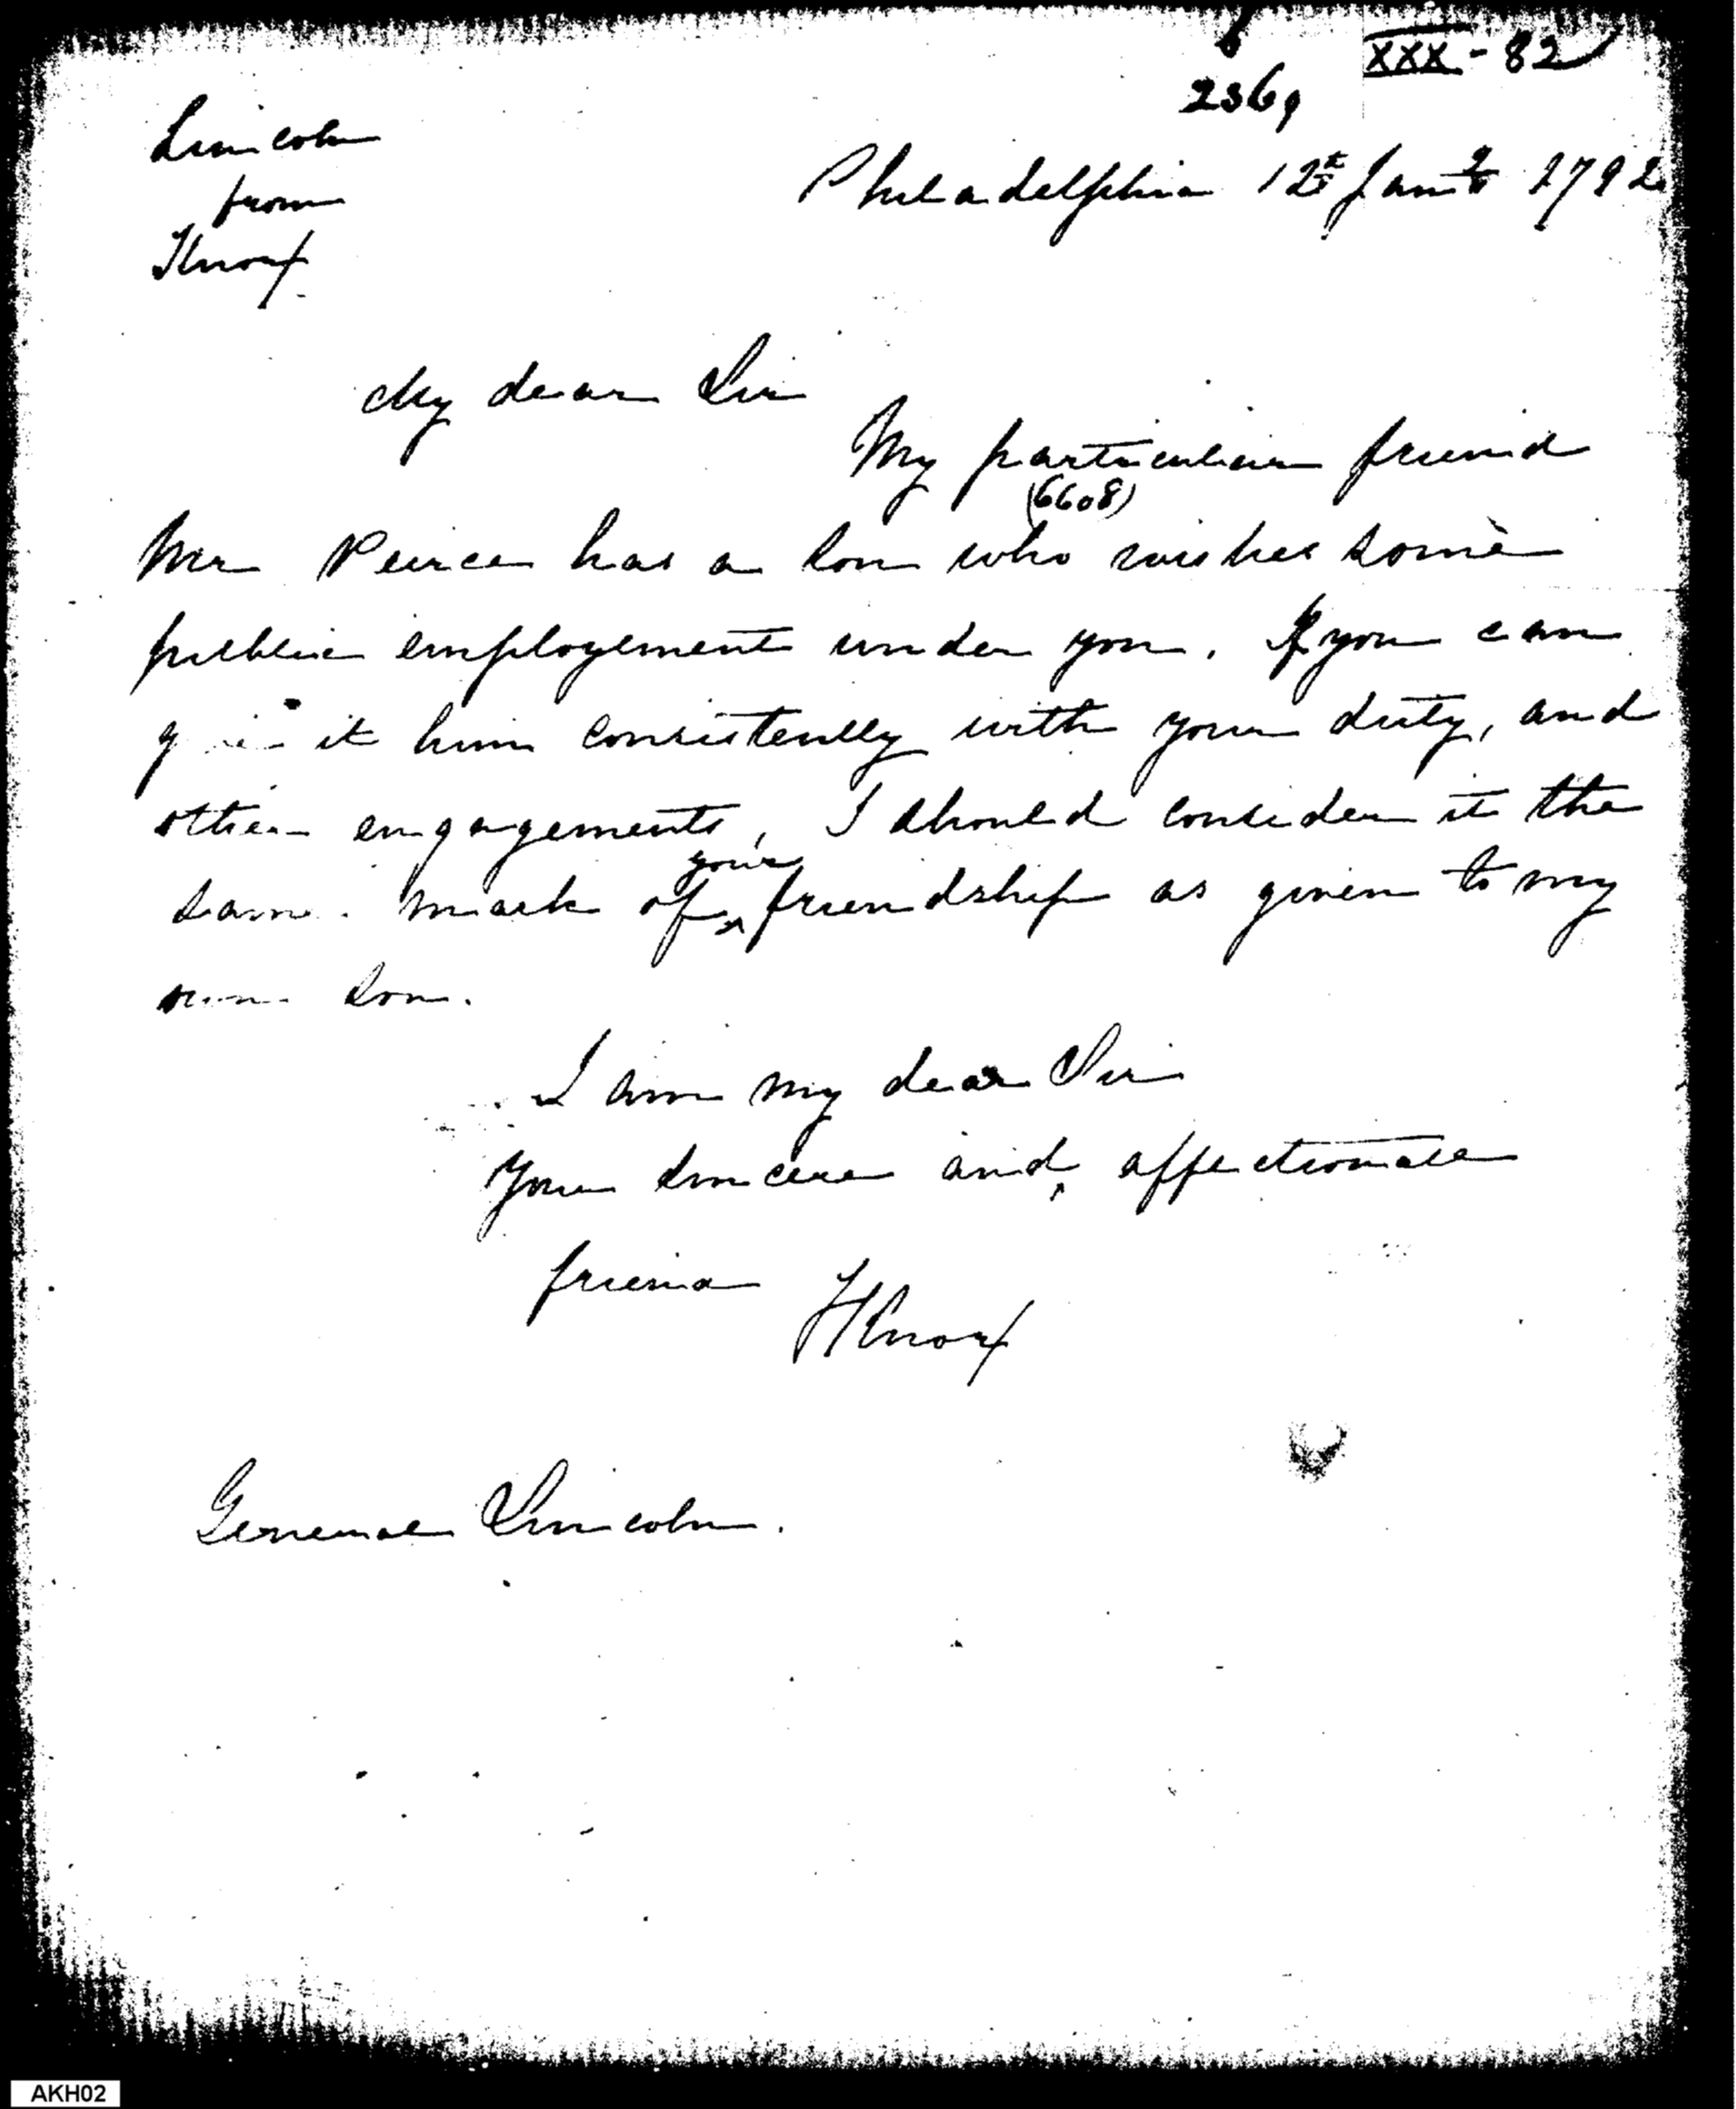 XXX - 82
2369
Lincoln
from
Knox
Philadelphia 12th Jany 1792
My dear Sir
My particular friend
(6608)
Mr Peirce has a son who wishes some
public employement under you. If you can
give it him consistently with your duty, and
other engagements, I should consider it the
your
same mark of ^ friendship as given to my
own son.
I am my dear Sir
Your sincere and affectionate
friend
HKnox
General Lincoln.
AKH02